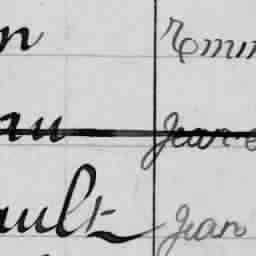 n Emm
au
ault Jean